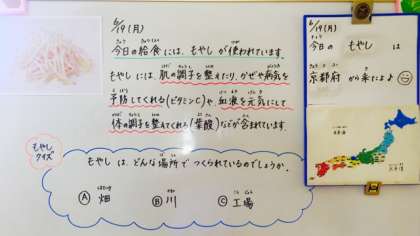 6/19(月)
今日の給食には、もやしが使われています。
もやしには、肌の調子を整えたり、かぜや病気を
予防してくれる(ビタミンC)や血液を元気にして
体の調子を整えてくれる(葉酸)などが含まれています。
もやし
クイズ
もやしは、どんな場所でつくられているのでしょうか。
Ⓐ畑 Ⓑ川 Ⓒ工場
6/19(月)
今日の もやし は
京都府 から来たよ♪
日本海
太平洋